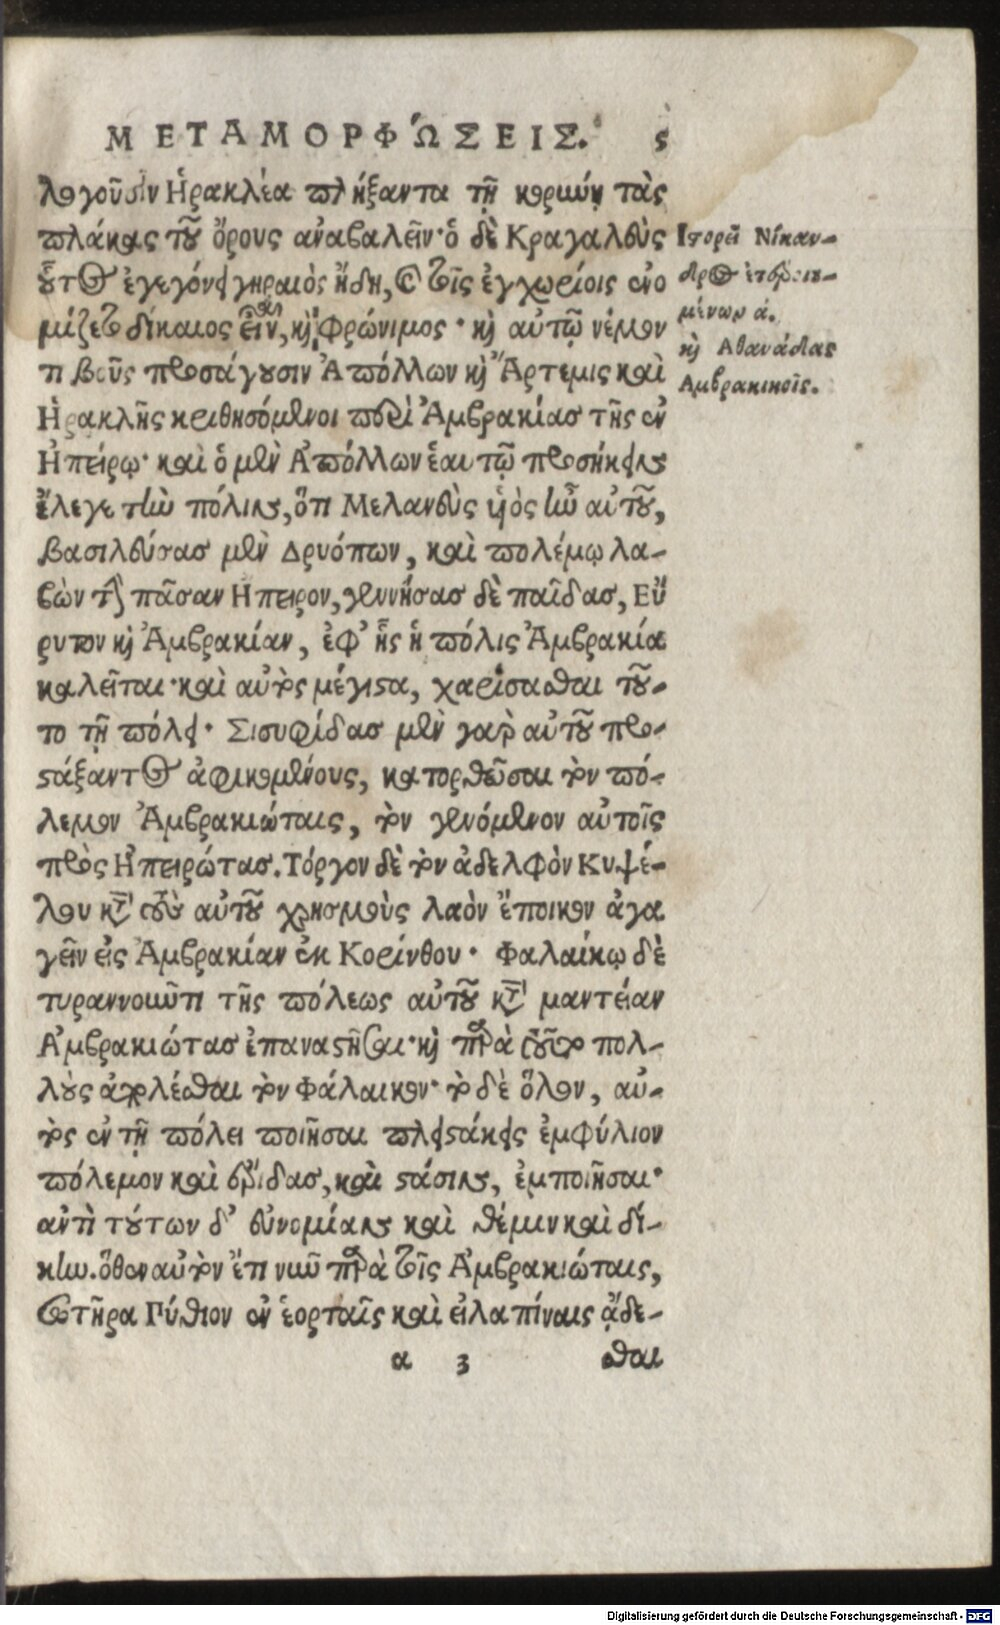 ΜΕΤΑΜΟΡΦΏΣΕΙΣ. 5
λογοῦσιν Ἡρακλέα πλήξαντα τῇ κορώῃ τὰς
πλάκας τοῦ ὄρους ἀναβαλεῖν· ὁ δὲ Κραγαλεὺς
οὗτος ἐγεγόνει γηραιὸς ἤδη, καὶ τοῖς ἐγχωρίοις ἐνο
μίζετο δίκαιος εἶναι, καὶ φρόνιμος· καὶ αὐτῷ νέμον
τι βοῦς προσάγουσιν Ἀπόλλων καὶ Ἄρτεμις καὶ
Ἡρακλῆς κριθησόμενοι περὶ Ἀμβρακίας τῆς ἐν
Ἠπείρῳ· καὶ ὁ μὲν Ἀπόλλων ἑαυτῷ προσήκειν
ἔλεγε τὴν πόλιν, ὅτι Μελανεὺς υἱὸς ἦν αὐτοῦ,
βασιλεύσας μὲν Δρυόπων, καὶ πολέμῳ λα-
βὼν τὴν πᾶσαν Ἤπειρον, γεννήσας δὲ παῖδας, Εὔ
ρυτον καὶ Ἀμβρακίαν, ἐφ' ἧς ἡ πόλις Ἀμβρακία
καλεῖται· καὶ αὐτὸς μέγιστα, χαρίσασθαι τοῦ-
το τῇ πόλει· Σισυφίδας μὲν γὰρ αὐτοῦ προ-
στάξαντος ἀφικομένους, κατορθῶσαι τὸν πό-
λεμον Ἀμβρακιώταις, τὸν γενόμενον αὐτοῖς
πρὸς Ἠπειρώτας. Τόργον δὲ τὸν ἀδελφὸν Κυψέ-
λου κατὰ τοὺς αὐτοῦ χρησμοὺς λαὸν ἔποικον ἀγα
γεῖν εἰς Ἀμβρακίαν ἐκ Κορίνθου· Φαλαίκῳ δὲ
τυραννοῦντι τῆς πόλεως αὐτοῦ κατὰ μαντείαν
Ἀμβρακιώτας ἐπαναστῆσαι· καὶ παρὰ τοῦτο πολ-
λοὺς ἀπολέσθαι τὸν Φάλαικον· τὸ δὲ ὅλον, αὐ-
τὸς ἐν τῇ πόλει ποιῆσαι πλειστάκεις ἐμφύλιον
πόλεμον καὶ ἔριδας, καὶ στάσιν, ἐμποιῆσαι·
ἀντὶ τούτων δ' εὐνομίαν καὶ θέμιν καὶ δί-
κην. ὅθεν αὐτὸν ἔτι νῦν παρὰ τοῖς Ἀμβρακιώταις,
Σωτῆρα Πύθιον ἐν ἑορταῖς καὶ εἰλαπίναις ᾄδε-
α 3 σθαι
Ἱστορεῖ Νίκαν-
δρος ἑτεροιου-
μένων ά.
καὶ Ἀθανάδας
Ἀμβρακικοῖς.
Digitalisierung gefördert durch die Deutsche Forschungsgemeinschaft - DFG